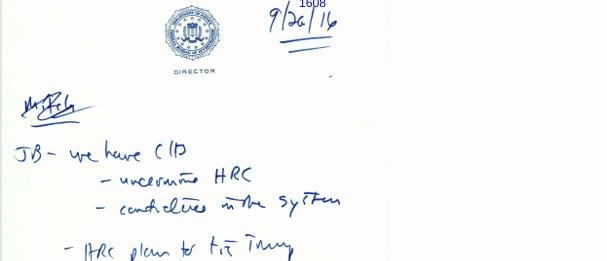 1608
9/26/16
DIRECTOR
JB - we have
- undermine HRC
- candidates in the system
- HRC plan to tie Trump